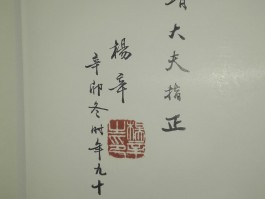 大夫指正
楊辛
辛卯冬时年九十